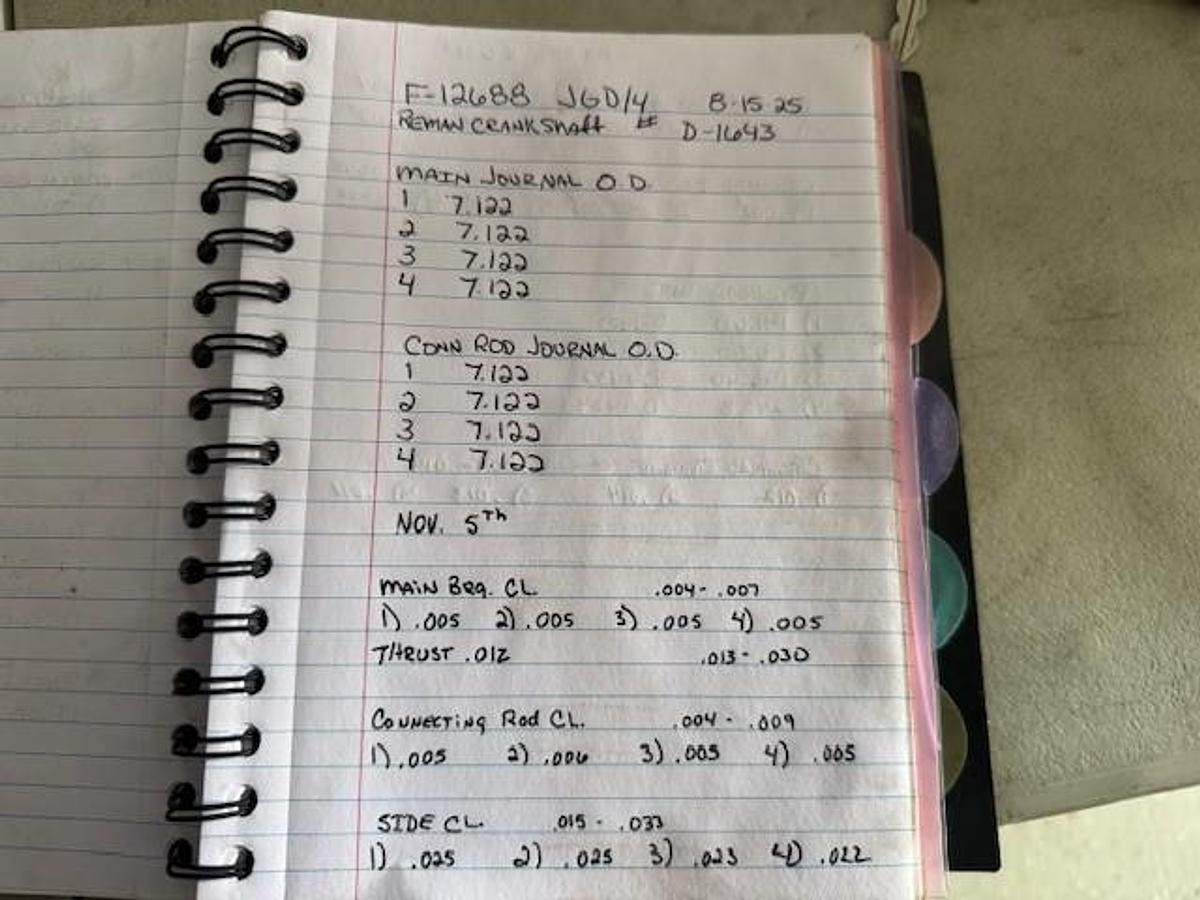 F-12688 JGD/4 8-15 25
REMAN CRANKSHAFT # D-1643
MAIN JOURNAL O.D.
1 7.122
2 7.122
3 7.122
4 7.122
CONN ROD JOURNAL O.D.
1 7.122
2 7.122
3 7.122
4 7.122
NOV. 5Th
MAIN BRG. CL .004 - .007
1) .005 2) .005 3) .005 4) .005
THRUST .012 .013 - .030
CONNECTING Rod CL. .004 - .009
1) .005 2) .006 3) .005 4) .005
SIDE CL. .015 - .033
1) .025 2) .025 3) .023 4) .022